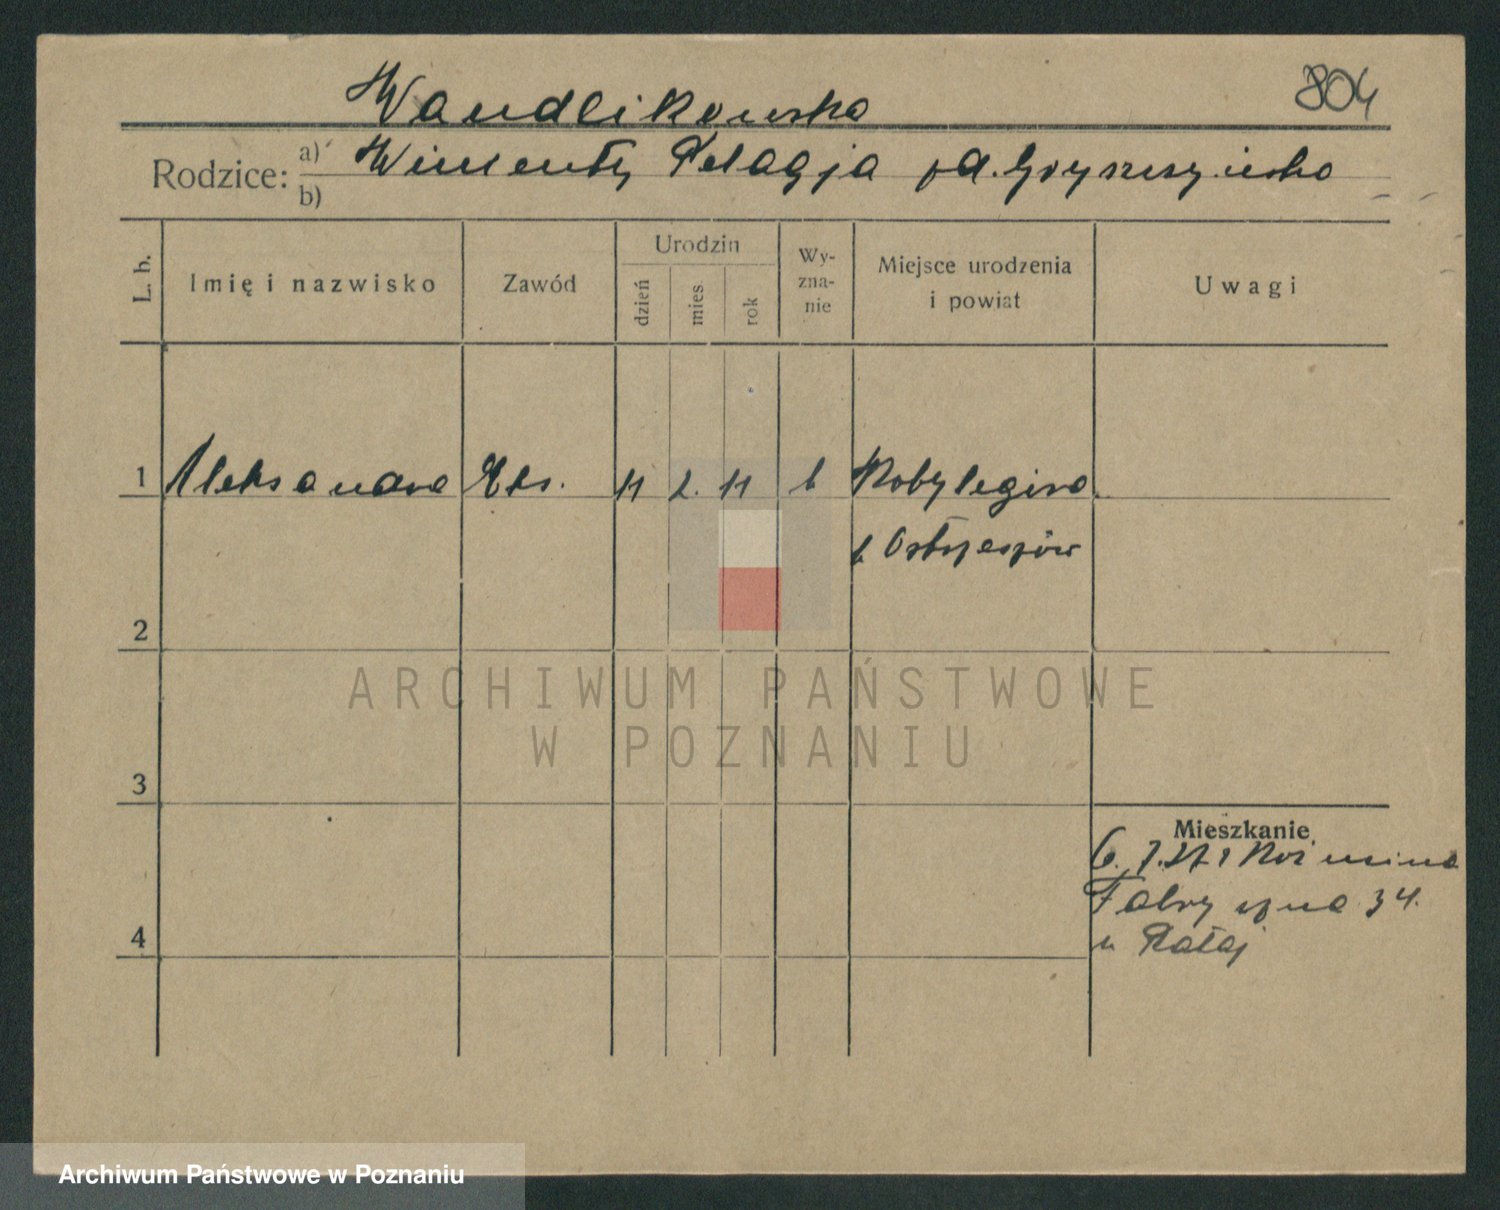 804
Wandlikowska
Rodzice:
a) Wincenty Pelagja zd.
b)
L. b.
Imię i nazwisko
Zawód
Urodzin
dzień
mies.
rok
Wy-
zna-
nie
Miejsce urodzenia
i powiat
Uwagi
1 Aleksandra 11 2. 11 k Kobylagóra
p Ostrzeszów
2
3
4
Mieszkanie
Fabryczna 34.
u Rataj
ARCHIWUM PAŃSTWOWE
W POZNANIU
Archiwum Państwowe w Poznaniu